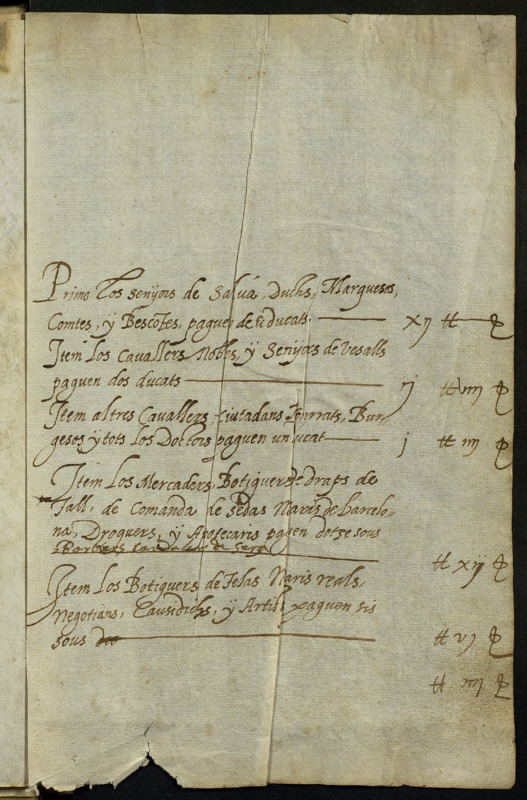 Primo Los senyors de Salvá, Duchs, Marquesos,
Comtes, y Bescōtes, paguen de ducats. xŋ ⁊
Item Los Cavallers Nobles, y Senyors de Vesalls
paguen dos ducats ij
Item altres Cavallers, Ciutadans Honrrats, Bur-
gesos y tots los Doctors paguen un ucat j
Item Los Mercaders, Botiguers de draps de
Tall, de Comanda de sedas Naris de Barcelo-
na, Droguers, y Apotecaris pagen dotze sous
xij
Item Los Botiguers de Telas Naris reals,
Negotians, Causidichs, y paguen sis
sous vj